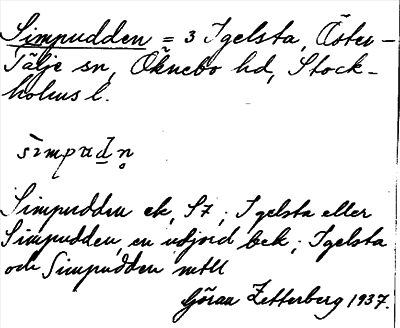 Simpudden = 3 Igelsta, Öster-
Tälje sn, Öknebo hd, Stock-
holms l.
sìmpud̲n̥
Simpudden ek, SZ; Igelsta eller
Simpudden, en udjord bek; Igelsta
och Simpudden mtll
Göran Zetterberg 1937.